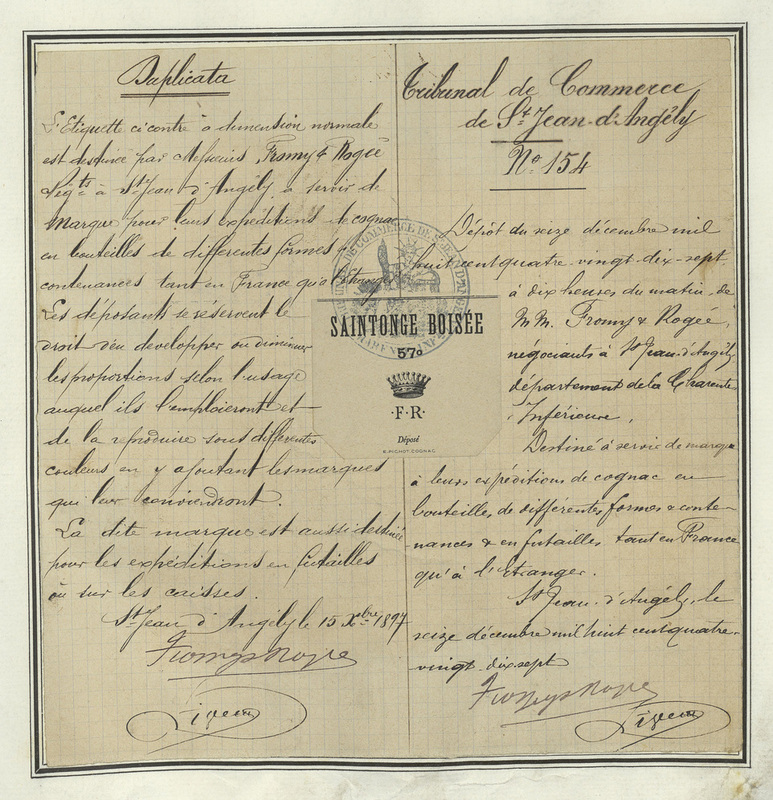 Duplicata
L'Etiquette ci contre à dimension normale
est destinée par Messieurs Fromy & Rogée
Négts à St Jean d'Angély, à servir de
Marque pour leurs expéditions de cognac
en bouteilles de différentes formes &
contenances tant en France qu'à l'étranger
Les déposants se réservent le
droit d'en developper ou diminuer
les proportions selon l'usage
auquel ils l'emploieront et
de la reproduire sous différentes
couleurs en y ajoutant les marques
qui leur conviendront.
La dite marque est aussi destinée
pour les expéditions en futailles
ou sur les caisses.
St Jean d'Angély le 15 Xbre 1897
Fromy & Rogée
Tribunal de Commerce
de St Jean-d'Angély
No 154
Dépôt du seize décembre mil
huit cent quatre-vingt-dix-sept
à dix heures du matin, de
MM. Fromy & Rogée,
négociants à St Jean-d'Angély,
département de la Charente
Inférieure,
Destiné à servir de marque
à leurs expéditions de cognac en
bouteilles de différentes formes & conte-
nances & en futailles, tant en France
qu'à l'étranger.
St Jean-d'Angély, le
seize décembre mil huit cent quatre-
vingt-dix-sept
Fromy & Rogée
SAINTONGE BOISÉE
57º
·F·R·
Déposé
E. PICHOT COGNAC